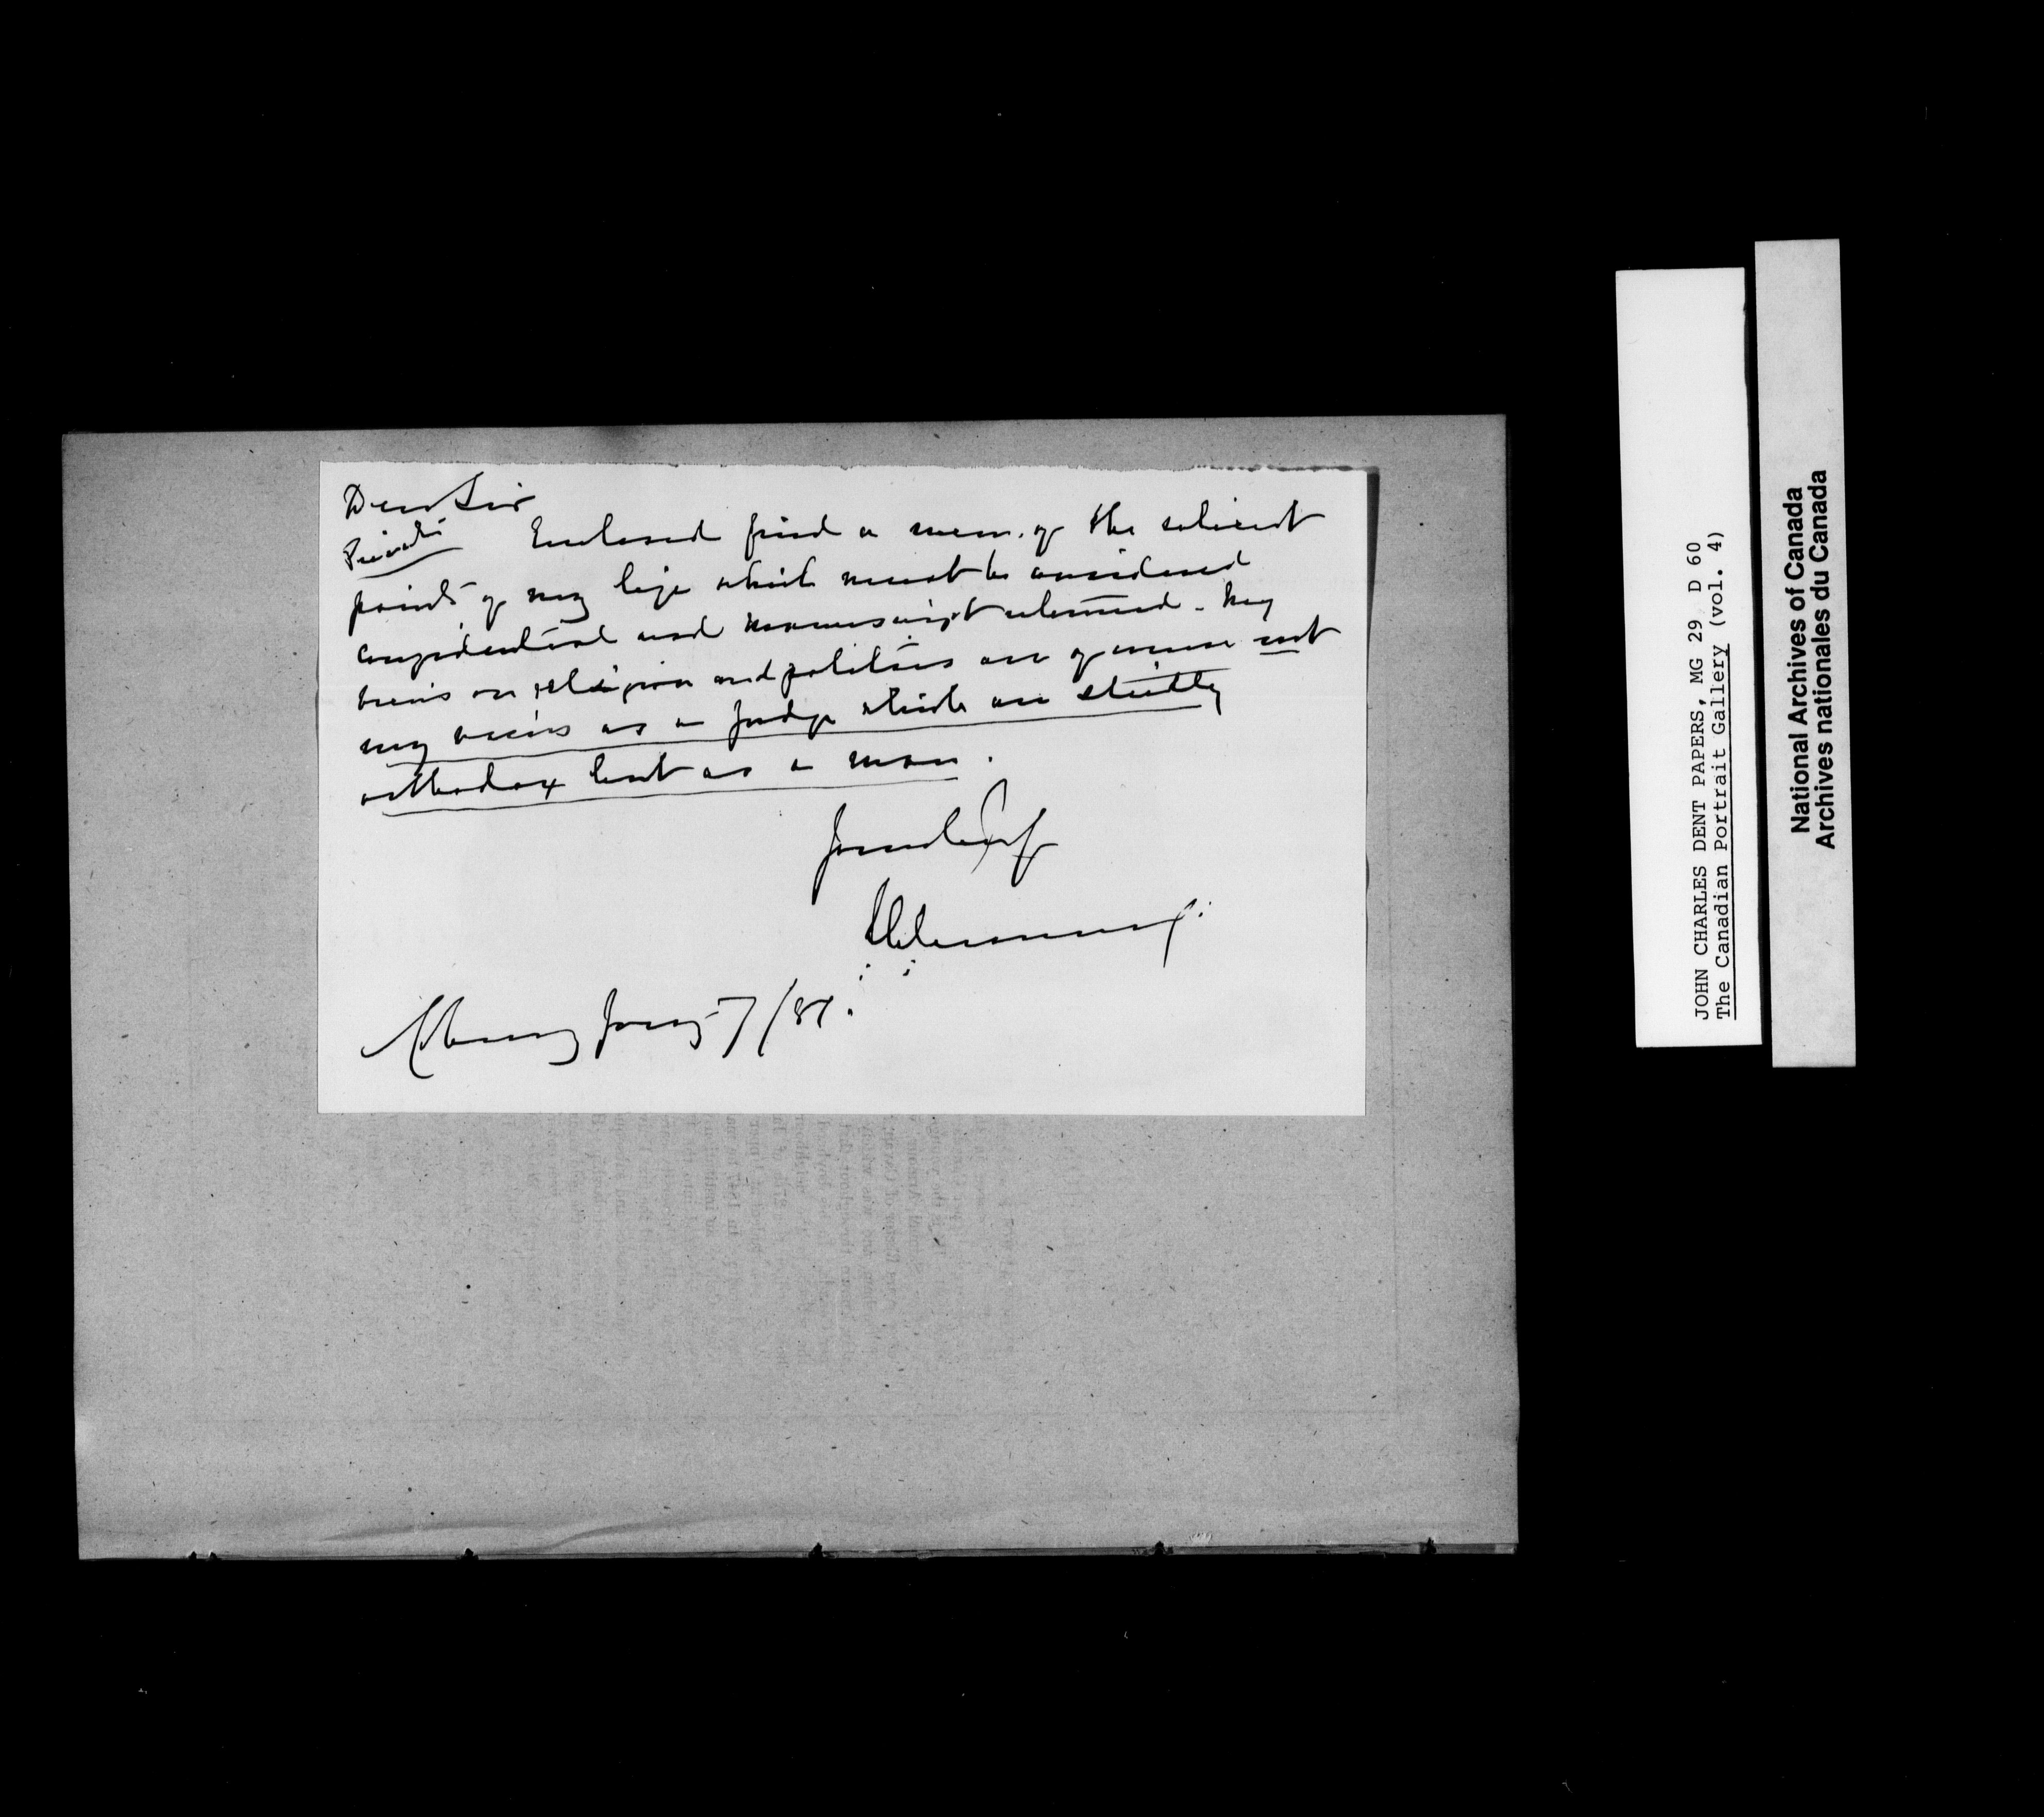 Dear Sir
Private
Enclosed find a mem. of the salient
points of my life which must be considered
confidential and manuscript returned. My
views on religion and politics are of course not
my views as a Judge which are strictly
orthodox but as a man.
Yours truly
Jany 7/81.
JOHN CHARLES DENT PAPERS, MG 29 D 60
The Canadian Portrait Gallery (vol. 4)
National Archives of Canada
Archives nationales du Canada